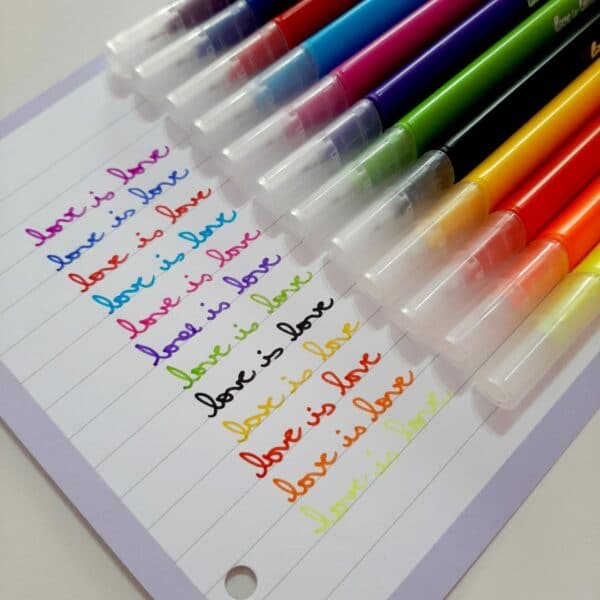 love is love
love is love
love is love
love is love
love is love
love is love
love is love
love is love
love is love
love is love
love is love
love is love